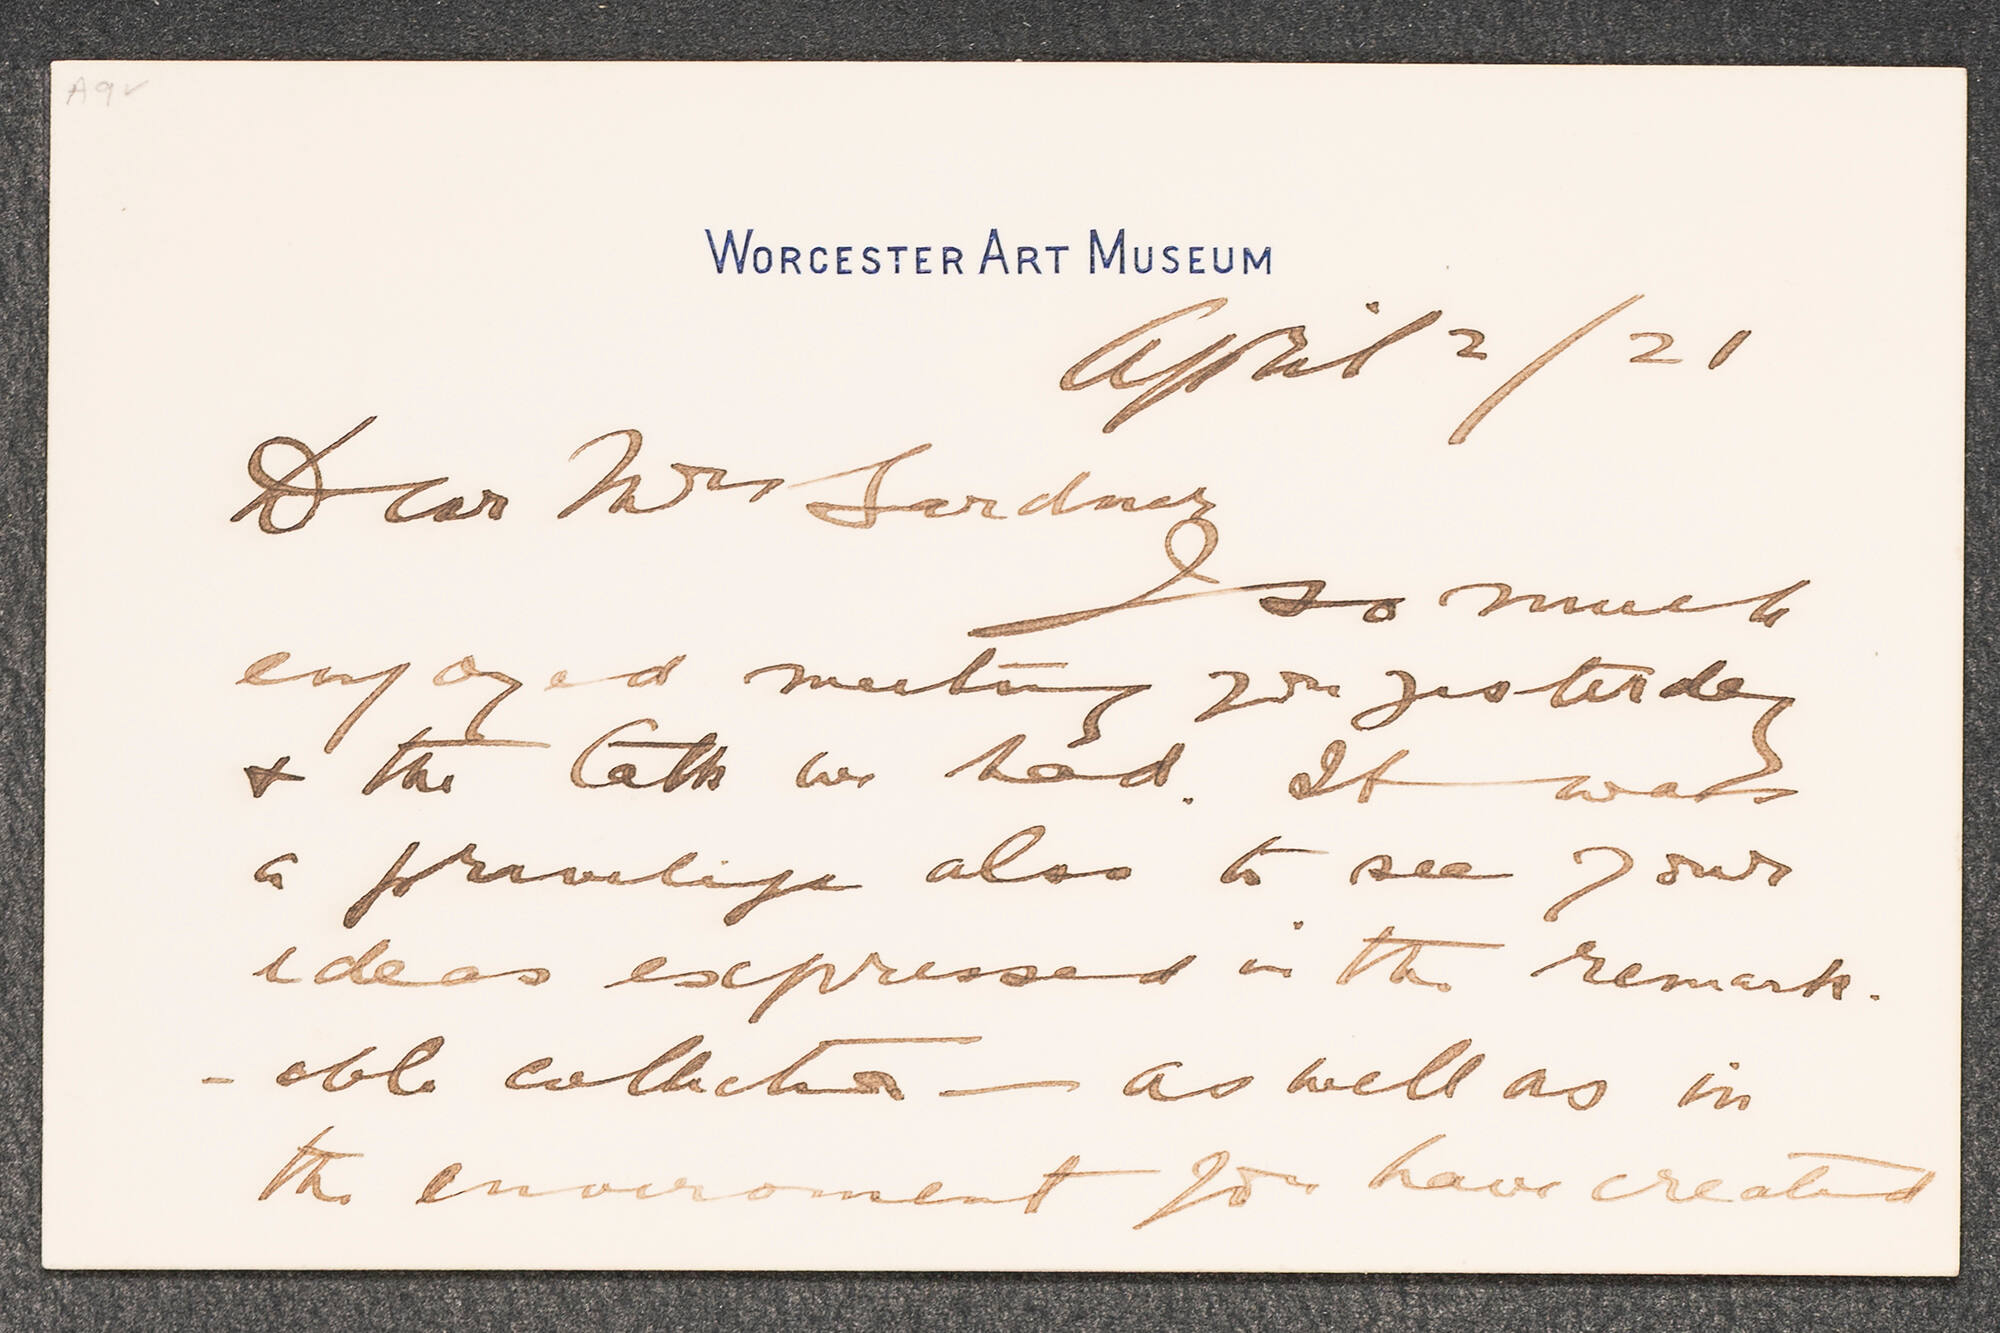 A9v
WORCESTER ART MUSEUM
April 2/21
Dear Mrs Gardner
I so much
enjoyed meeting you yesterday
& the talk we had. It was
a privelige also to see your
ideas expressed in the remark-
-able collection — as well as in
the enviroment you have created